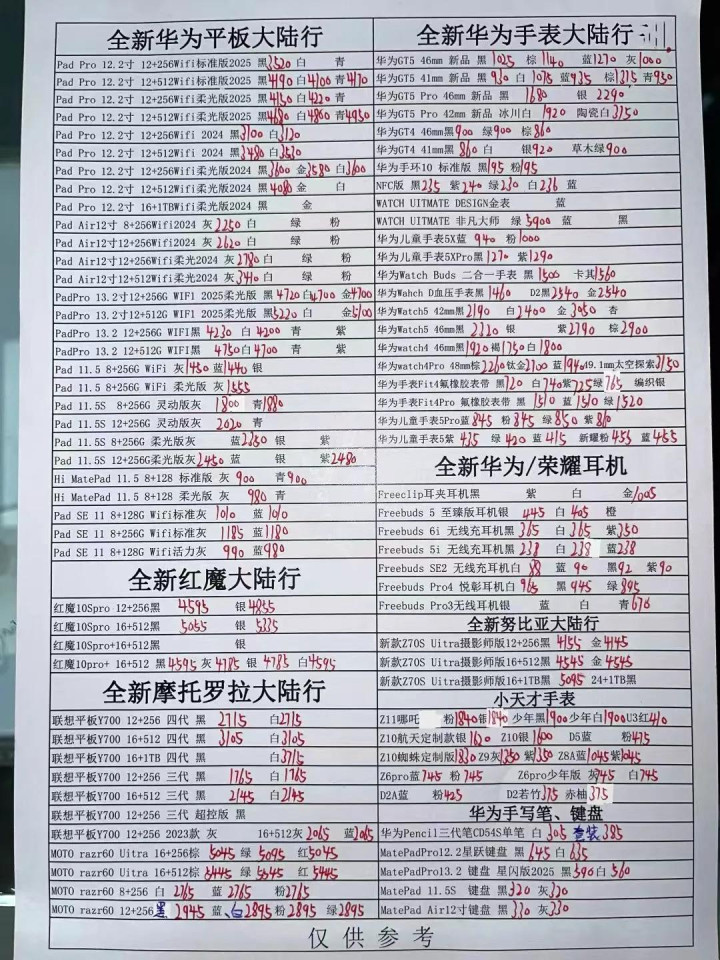 全新华为平板大陆行
Pad Pro 12.2寸 12+256Wifi标准版2025 黑3520 白 青
Pad Pro 12.2寸 12+512Wifi标准版2025 黑4190 白4100 青4170
Pad Pro 12.2寸 12+256Wifi柔光版2025 黑4150 白4220 青
Pad Pro 12.2寸 12+512Wifi柔光版2025 黑4680 白4860 青4950
Pad Pro 12.2寸 12+256Wifi 2024 黑3100 白3120
Pad Pro 12.2寸 12+512Wifi 2024 黑3480 白3530
Pad Pro 12.2寸 12+256Wifi柔光版2024 黑3600 金3580 白3600
Pad Pro 12.2寸 12+512Wifi柔光版2024 黑4080 金 白
Pad Pro 12.2寸 16+1TBWifi柔光版2024 黑 金
Pad Air12寸 8+256Wifi2024 灰2250 白 绿 粉
Pad Air12寸 12+256Wifi2024 灰2620 白 绿 粉
Pad Air12寸 12+256Wifi柔光2024 灰2780 白 绿 粉
Pad Air12寸 12+512Wifi柔光2024 灰3410 白 绿 粉
PadPro 13.2寸12+256G WIFI 2025柔光版 黑4720 白4700 金4700
PadPro 13.2寸12+512G WIFI 2025柔光版 黑5220 白 金5100
PadPro 13.2 12+256G WIFI黑 4230 白4200 青 紫
PadPro 13.2 12+512G WIFI黑 4750 白4700 青 紫
Pad 11.5 8+256G WiFi 灰1450 蓝1440 银
Pad 11.5 8+256G WiFi 柔光版 灰1555
Pad 11.5S 8+256G 灵动版灰 1800 青1880
Pad 11.5S 12+256G 灵动版灰 2020 青
Pad 11.5S 8+256G 柔光版灰 蓝2250 银 紫
Pad 11.5S 12+256G柔光版灰2450 蓝 银 紫2480
Hi MatePad 11.5 8+128 标准版 灰 900 青900
Hi MatePad 11.5 8+128 柔光版 灰 980 青
Pad SE 11 8+128G Wifi标准灰 1010 蓝1010
Pad SE 11 8+256G Wifi标准灰 1185 蓝1180
Pad SE 11 8+128G Wifi活力灰 990 蓝980
全新红魔大陆行
红魔10Spro 12+256黑 4595 银4855
红魔10Spro 16+512黑 5055 银5335
红魔10Spro+16+512黑 银
红魔10pro+ 16+512 黑4595 灰4785 银4785 白4595
全新摩托罗拉大陆行
联想平板Y700 12+256 四代 黑 2715 白2715
联想平板Y700 16+512 四代 黑 3105 白3105
联想平板Y700 16+1TB 四代 黑 白3715
联想平板Y700 12+256 三代 黑 1765 白1765
联想平板Y700 16+512 三代 黑 2145 白2145
联想平板Y700 12+256 三代 超控版 黑
联想平板Y700 12+256 2023款 灰 16+512灰2065 蓝2065
MOTO razr60 Uitra 16+256棕 5045 绿 5095 红5045
MOTO razr60 Uitra 16+512棕 5445 绿 5645 红 5445
MOTO razr60 8+256 白 2765 蓝 2765 粉2765
MOTO razr60 12+256黑 2945 蓝、白2895 粉2895 绿2895
全新华为手表大陆行
华为GT5 46mm 新品 黑 1025 棕1140 蓝1270 灰1000
华为GT5 41mm 新品 黑 930 白 1075 蓝935 棕1375 青950
华为GT5 Pro 46mm 新品 黑 1680 银 2290
华为GT5 Pro 42mm 新品 冰川白 1920 陶瓷白3150
华为GT4 46mm黑900 绿900 棕860
华为GT4 41mm黑860 白 银920 草木绿900
华为手环10 标准版 黑195 粉195
NFC版 黑235 紫240 绿230 白236 蓝
WATCH UITMATE DESIGN金表 蓝
WATCH UITMATE 非凡大师 绿5900 蓝 黑
华为儿童手表5X蓝 940 粉1000
华为儿童手表5XPro黑1270 紫1290
华为Watch Buds 二合一手表 黑1500 卡其1560
华为Wahch D血压手表黑1460 D2黑2540 金2540
华为Watch5 42mm黑2190 白2400 金3050 杏
华为Watch5 46mm 黑 2220 银 紫2790 棕2900
华为watch4 46mm黑1920褐1750白1800
华为watch4Pro 48mm棕2260钛金2700 蓝1940 49.1mm太空探索3150
华为手表Fit4氟橡胶表带 黑720 白740紫725绿765 编织银
华为手表Fit4Pro 氟橡胶表带 黑 1510 蓝1510 绿1520
华为儿童手表5Pro蓝845 粉845 绿850 紫810
华为儿童手表5紫 435 绿420 蓝415 新耀粉455 蓝455
全新华为/荣耀耳机
Freeclip耳夹耳机黑 紫 白 金1005
Freebuds 5 至臻版耳机银 445 白405 橙
Freebuds 6i 无线充耳机黑 365 白365 紫350
Freebuds 5i 无线充耳机黑 238 白238 蓝238
Freebuds SE2 无线充耳机白 88 蓝 90 黑92 紫90
Freebuds Pro4 悦彰耳机白965 黑945 绿895
Freebuds Pro3无线耳机银 蓝 白 青670
全新努比亚大陆行
新款Z70S Uitra摄影师版12+256黑 4155 金4145
新款Z70S Uitra摄影师版16+512黑 4545 金4545
新款Z70S Uitra摄影师版16+1TB黑 5095 24+1TB黑
小天才手表
Z11哪吒 粉1840银1840 少年黑1900少年白1900U3红410
Z10航天定制款银1630 Z10银1600 D5蓝 粉475
Z10蜘蛛定制版1830 Z9灰1350 紫1350 Z8A蓝1045紫1045
Z6pro蓝745 粉 745 Z6pro少年版 灰745 白745
D2A蓝 粉425 D2若竹375 赤柚375
华为手写笔、键盘
华为Pencil三代笔CD54S单笔 白 305 套装385
MatePadPro12.2星跃键盘 黑 645 白635
MatePadPro13.2 键盘 星闪版2025 黑590白560
MatePad 11.5S 键盘 黑320 灰320
MatePad Air12寸键盘 黑330 灰330
仅供参考